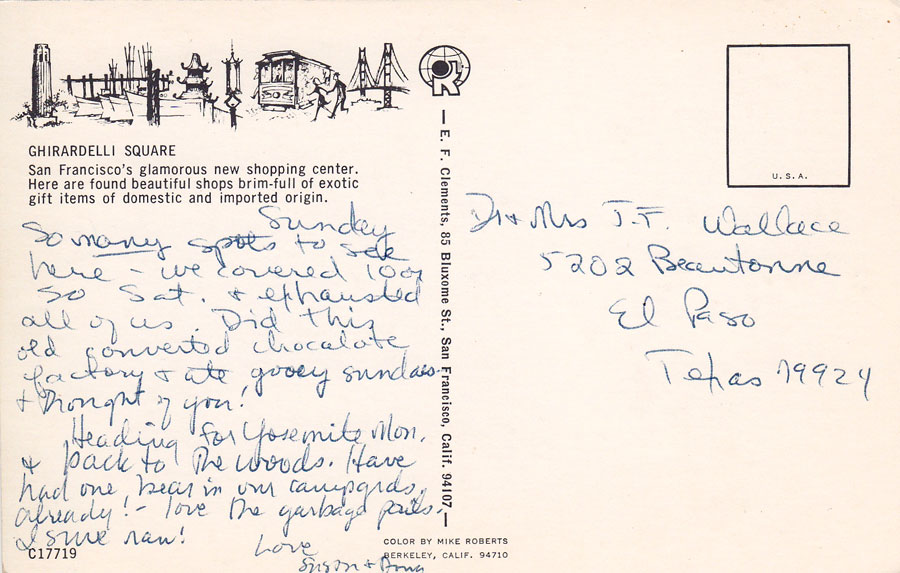 GHIRARDELLI SQUARE
San Francisco's glamorous new shopping center.
Here are found beautiful shops brim-full of exotic
gift items of domestic and imported origin.
Sunday
So many spots to see
here - we covered 10 or
so Sat. & exhausted
all of us. Did this
old converted chocolate
factory & ate gooey sundaes
& thought of you!
Heading for Yosemite Mon.
& back to the woods. Have
had one bear in our campgrds.
already! - love the garbage pails.
I sure ran!
Love
Susan & Doug
C17719
E. F. Clements, 85 Bluxome St., San Francisco, Calif. 94107
COLOR BY MIKE ROBERTS
BERKELEY, CALIF. 94710
U.S.A.
Dr & Mrs J.F. Wallace
5202 Beautonne
El Paso
Texas 79924